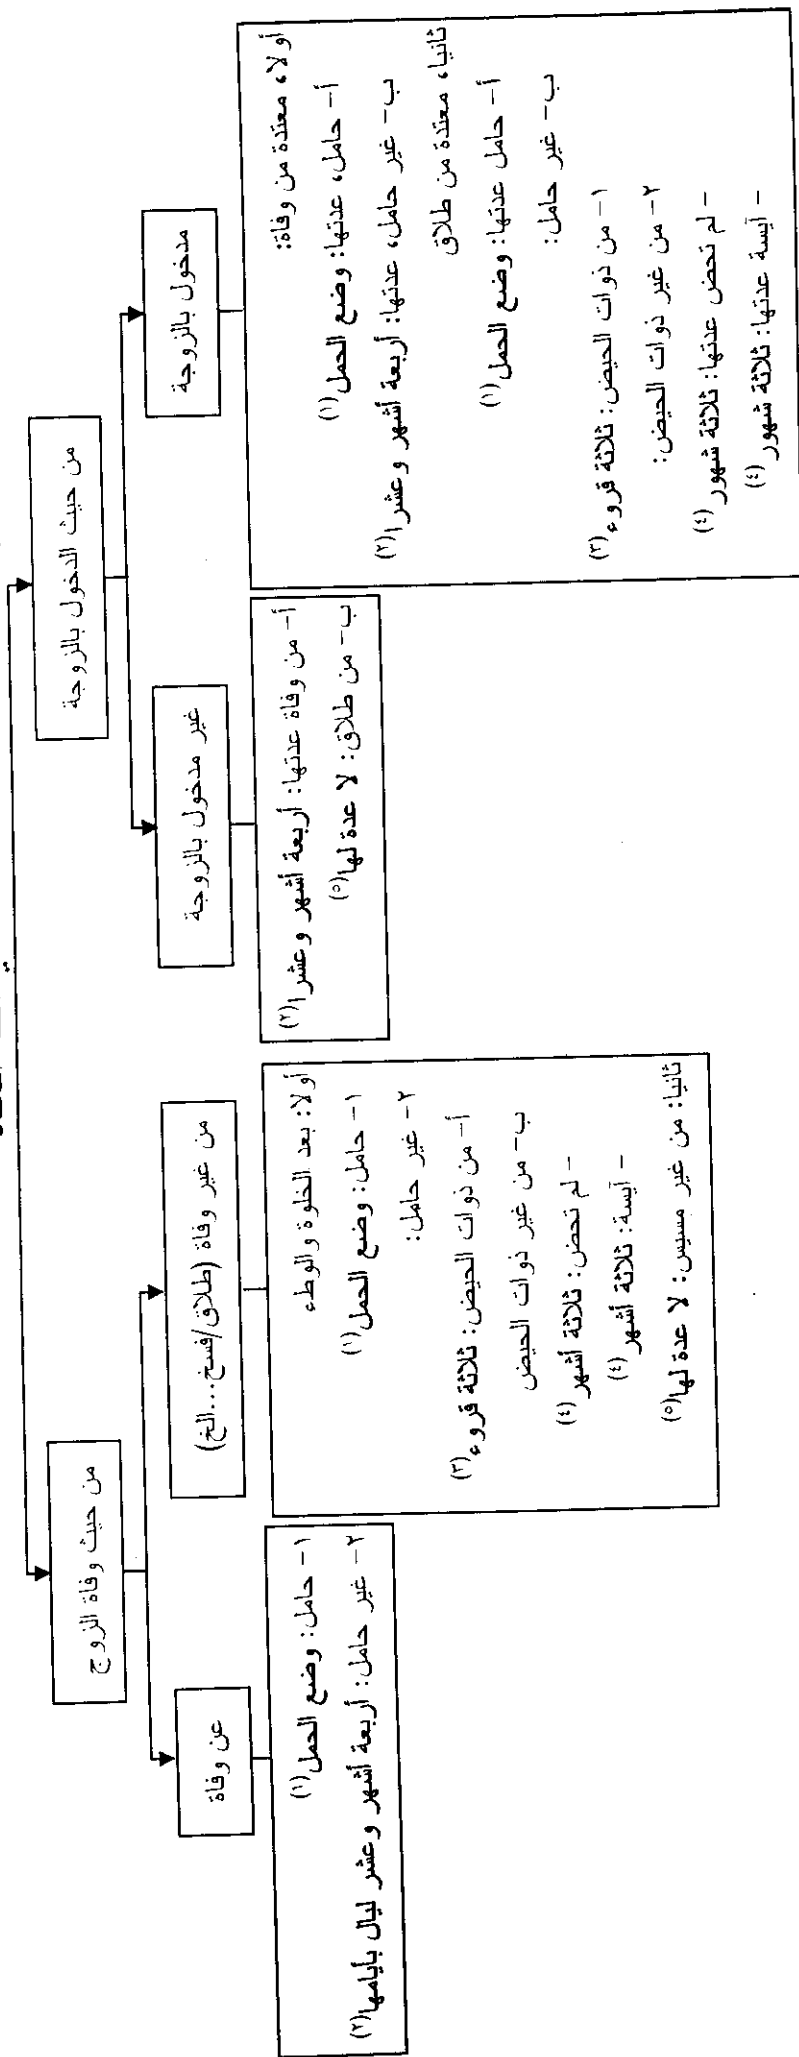 من حيث الدخول بالزوجة
مدخول بالزوجة
أولا، معتدة من وفاة:
أ- حامل، عدتها: وضع الحمل(١)
ب- غير حامل، عدتها: أربعة أشهر وعشرا(٢)
ثانيا، معتدة من طلاق
أ- حامل عدتها: وضع الحمل(١)
ب- غير حامل:
١- من ذوات الحيض: ثلاثة قروء(٣)
٢- من غير ذوات الحيض:
- لم تحض عدتها: ثلاثة شهور(٤)
- آيسة عدتها: ثلاثة شهور(٤)
غير مدخول بالزوجة
أ- من وفاة عدتها: أربعة أشهر وعشرا(٢)
ب- من طلاق: لا عدة لها(٥)
من حيث وفاة الزوج
من غير وفاة (طلاق/فسخ...الخ)
أولا: بعد الخلوة والوطء
١- حامل: وضع الحمل(١)
٢- غير حامل:
أ- من ذوات الحيض: ثلاثة قروء(٣)
ب- من غير ذوات الحيض
- لم تحض: ثلاثة أشهر(٤)
- آيسة: ثلاثة أشهر(٤)
ثانيا: من غير مسيس: لا عدة لها(٥)
عن وفاة
١- حامل: وضع الحمل(١)
٢- غير حامل: أربعة أشهر وعشر ليال بأيامها(٢)